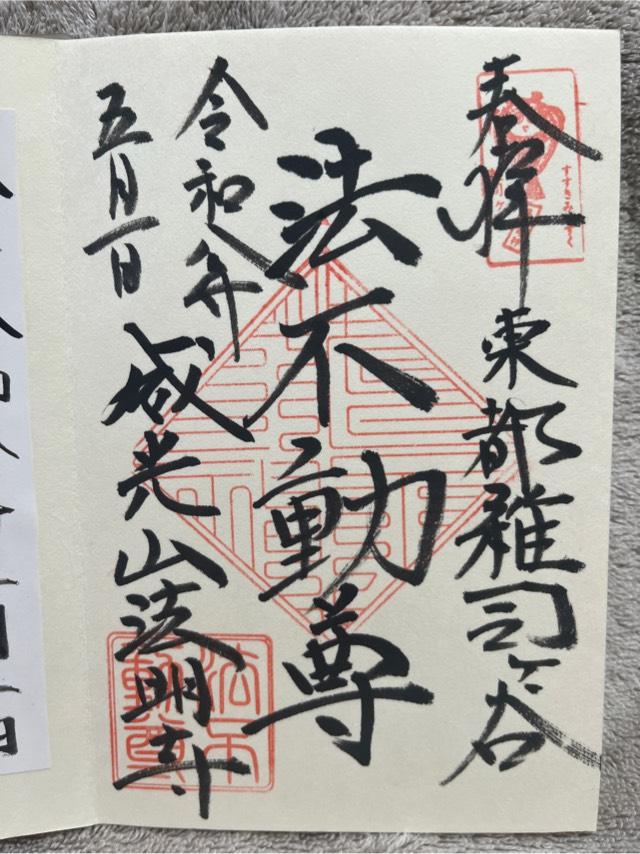 奉拝
東都雑司ヶ谷
法不動尊
令和八年
五月一日
威光山法明寺
すすきみみずく
法不
動尊